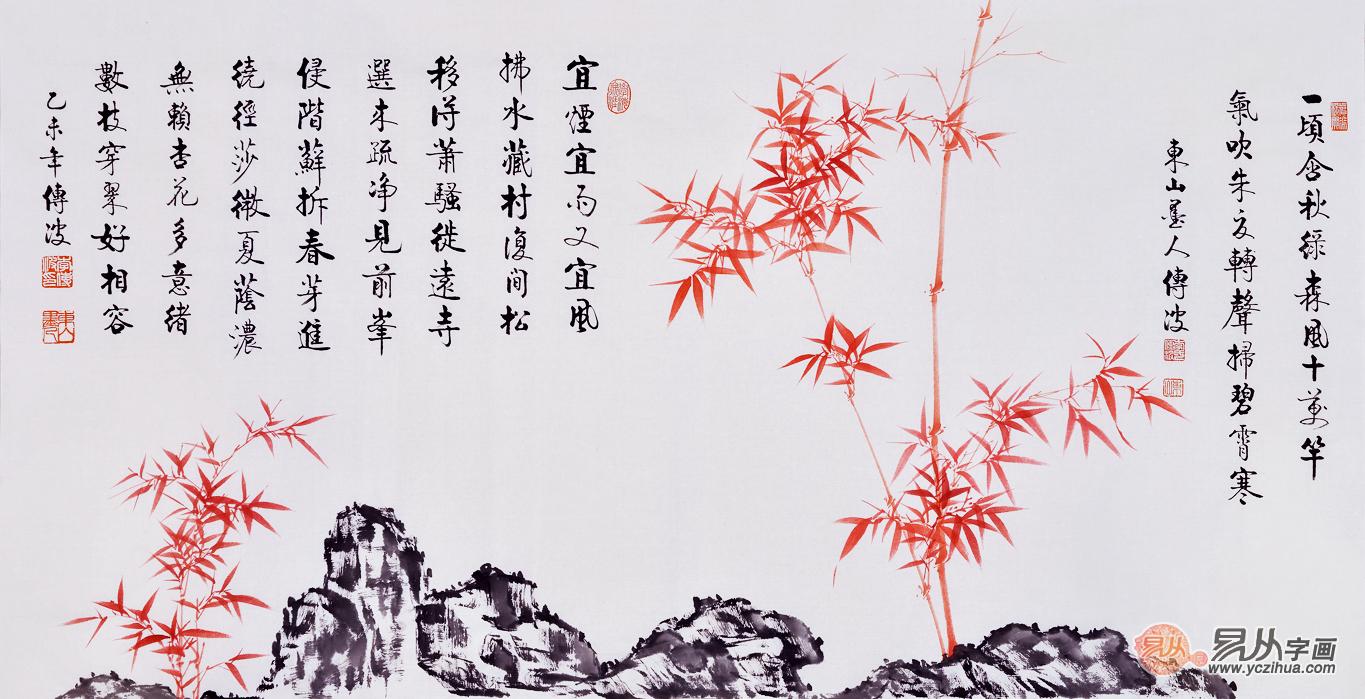 一頃含秋綠森風十萬竿
氣吹朱夏轉聲掃碧霄寒
東山墨人傳波
宜煙宜雨又宜風
拂水藏村復間松
移得蕭騷從遠寺
選來疏淨見前峯
侵階蘚拆春芽進
繞徑莎微夏蔭濃
無賴杏花多意緒
數枝穿翠好相容
乙未年傳波
易从
易从字画
www.yczihua.com